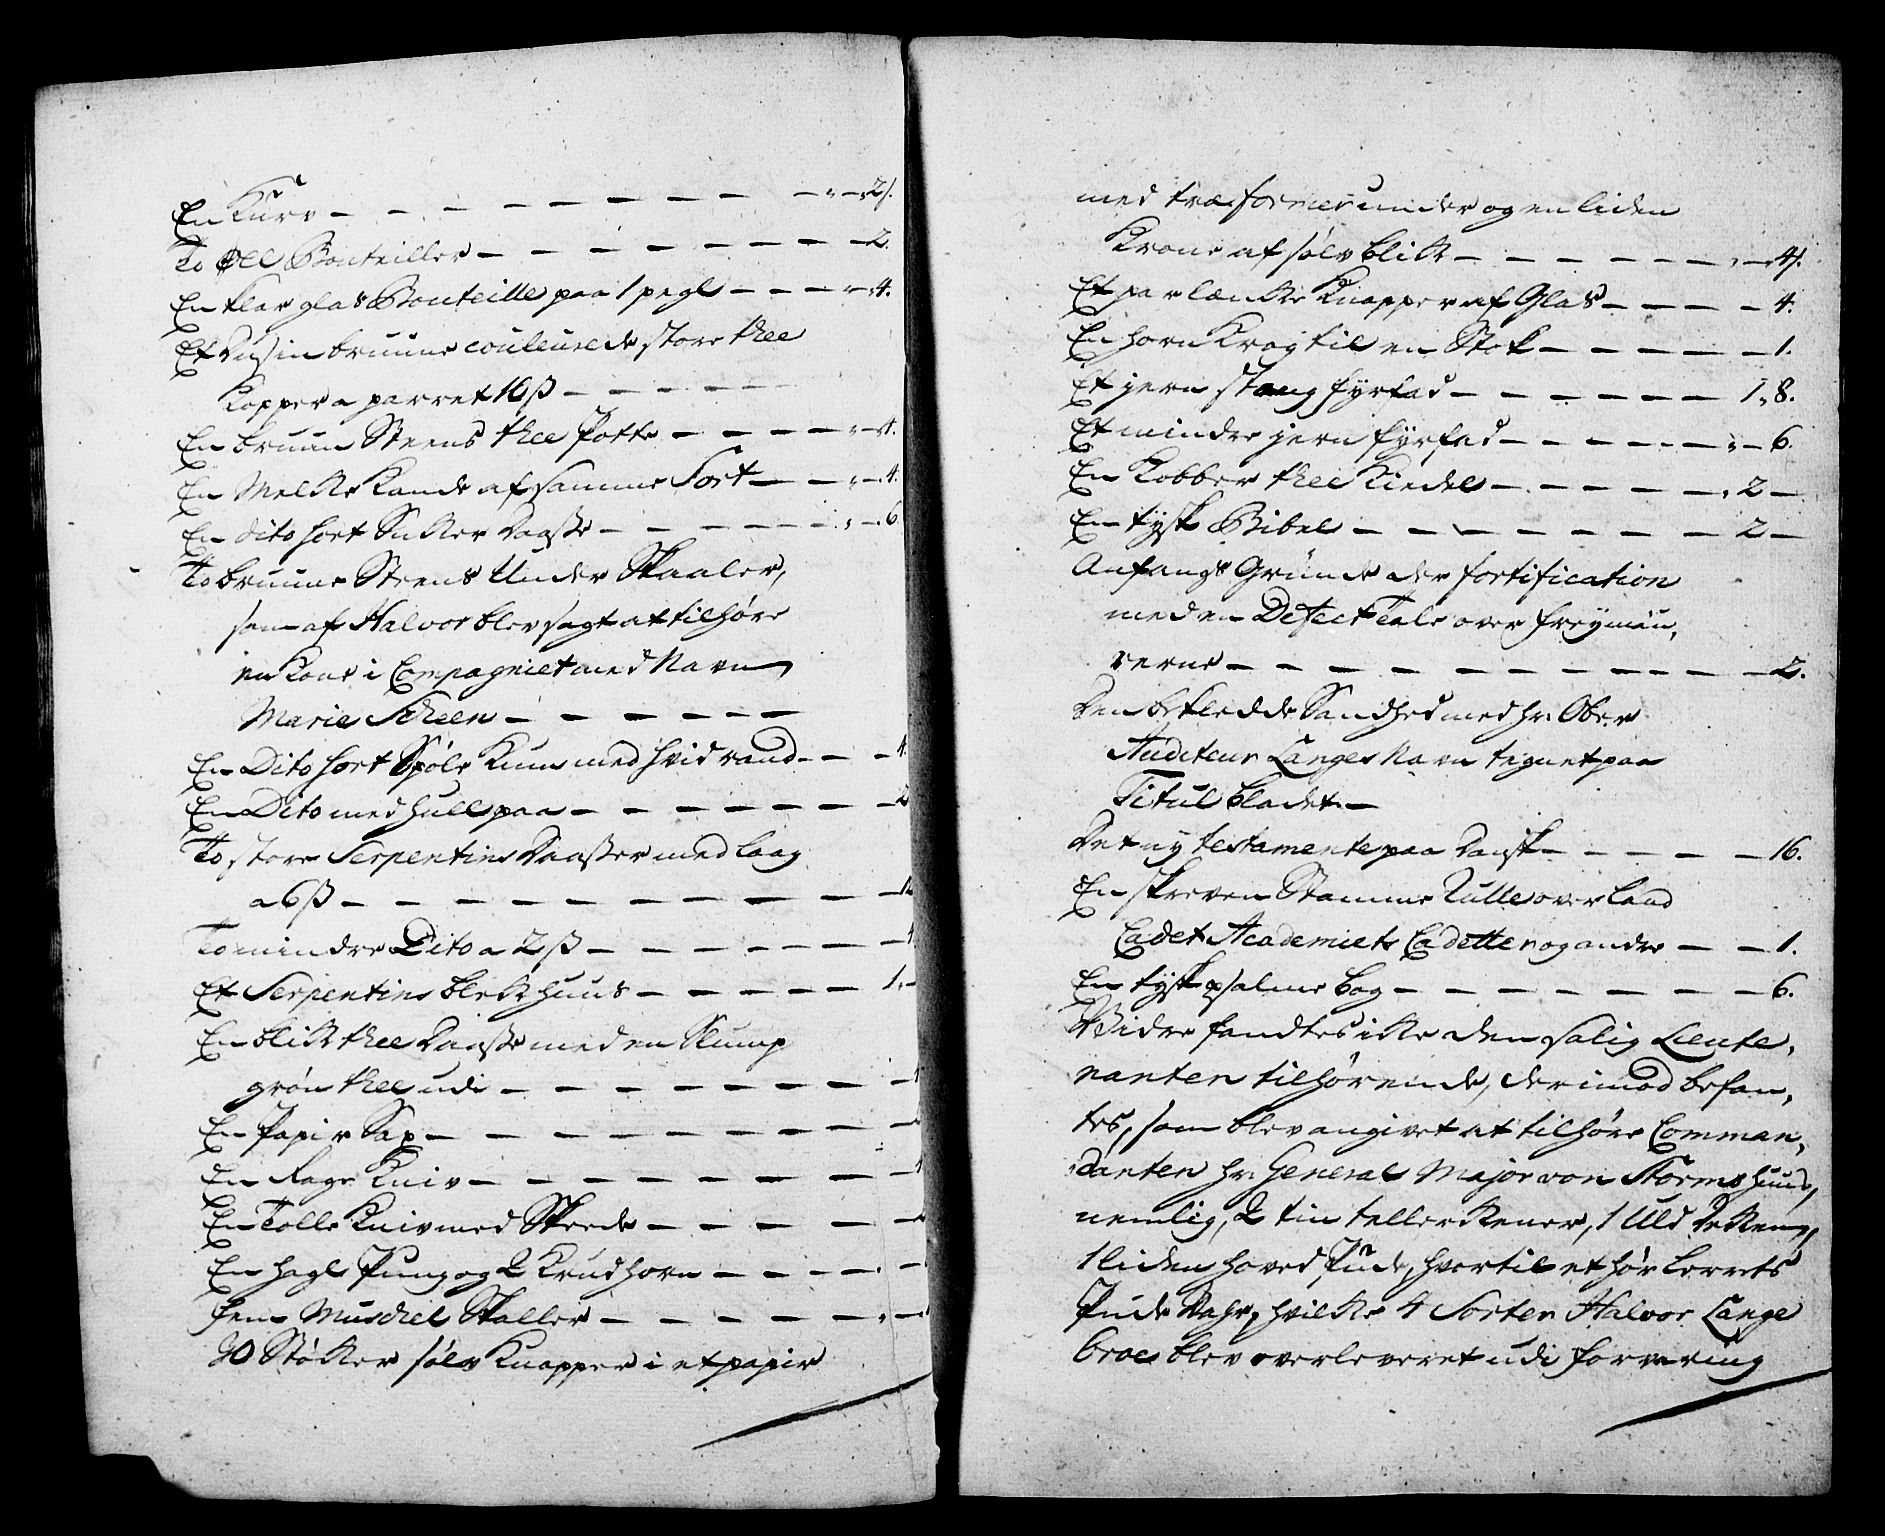 En Kurv — — — — — — — — " — " 2 ß.
To Øll Bouteiller — — — — — — — 2.
En klar glas Bouteille paa 1 pegl — — — " — 4.
Et Dusin bruune couleurede store thee
Kopper a parret 16 ß — — — — —
En bruun Steens thee Potte — — — — " — 4.
En Melke Kande af samme Sort — — " — 4.
En dito sort Sukker Daasse — — — — — " — 6
To bruune Steens Under Skaaler,
som af Halvor blev sagt at tilhøre
en Kone i Compagniet med Navn
Marie Scheen — — — — — —
En Dito sort Spøle Kum med hvid rand — — 4
En Dito med hull paa — — — — — — 2
To store Serpentins Daasser med laag
a 6 ß — — — — — — — — —
To mindre Dito a 2 ß — — — — — — 4
Et Serpentins blekhuus — — — — — 1 " —
En blik thee Daasse med en Slump
grøn thee udi — — — — — — —
En Papir Sax — — — — — — — —
En Rage Kniv — — — — — — —
En Tolle Kniv med Skeede — — — — —
En hagl Pung og 2 Krudhorn — — — —
fem Muschel Skaller — — — — — " —
20 Støkker sølv Knapper i et papir
med træ former under og en liden
Krone af sølv blik — — — — — — " — 4 ß.
Et par lænke Knapper af Glas — — — — 4.
En horn Krog til en Stok — — — — — 1.
Et jern stang fyrfad — — — — — — 1 " 8.
Et mindre jern fyrfad — — — — — " — 6.
En Kobber thee Kiedel — — — — — " 2 —
En tysk Bibel — — — — — — — 2 —
Anfangs Gründe der fortification
med en Defect tale over freymäu,
rerne — — — — — — — — — 2.
Den beklædde Sandhed med hr: Ober
Auditeur Langes Navn tegnet paa
Titul bladet —
Det ny testamente paa Dansk — — — — 16.
En skreven Stamme Rulle over land
Cadet Academiets Cadetter og andre — — 1.
En tysk psalme bog — — — — — — 6.
Widre fandtes ikke den salig Lieute,
nanten tilhørende, derimod befan,
tes, som blev angivet at tilhøre Comman,
danten hr: General Major von Storms huus,
nemlig, 2 tin tellerkener, 1 Uld Dekken,
1 liden hoved Pude, hvortil et hør lerrets
Pude Vahr, hvilke 4 Sorter Halvor Lange
broe blev overleveret udi forvaring